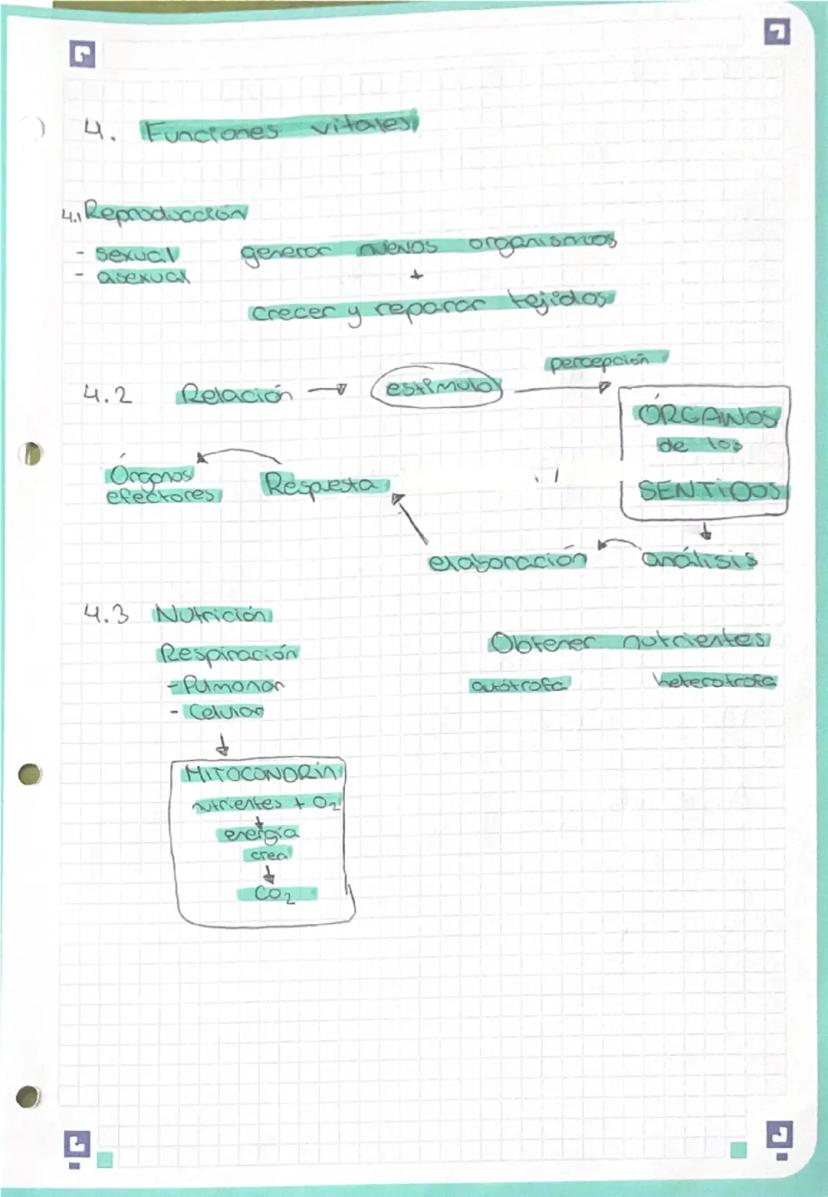 4. Funciones vitales
4.1 Reproducción
- sexual
- asexual
generar nuevos organismos
+
crecer y reparar tejidos
4.2 Relación → estímulo → percepción
ÓRGANOS
de los
SENTIDOS
análisis
elaboración
Respuesta
Órganos
efectores
4.3 Nutrición
Respiración
- Pulmonar
- Celular
MITOCONDRIA
nutrientes + O₂
energía
crea
CO₂
Obtener nutrientes
autótrofa heterotrofa